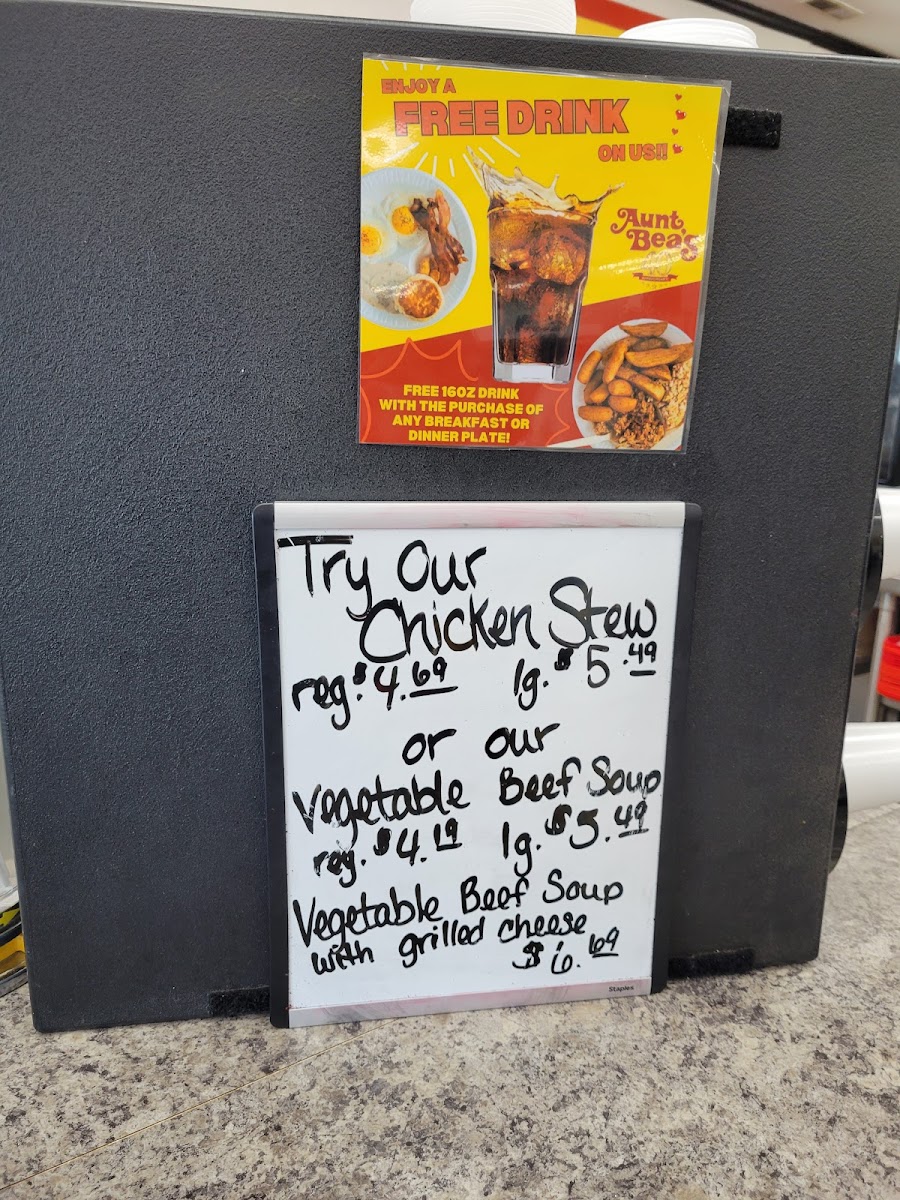 ENJOY A
FREE DRINK
ON US!!
Aunt
Bea's
FREE 16OZ DRINK
WITH THE PURCHASE OF
ANY BREAKFAST OR
DINNER PLATE!
Try Our
Chicken Stew
reg. $4.69 lg. $5.49
or our
Vegetable Beef Soup
reg. $4.19 lg. $5.49
Vegetable Beef Soup
with grilled cheese
$6.69
Staples